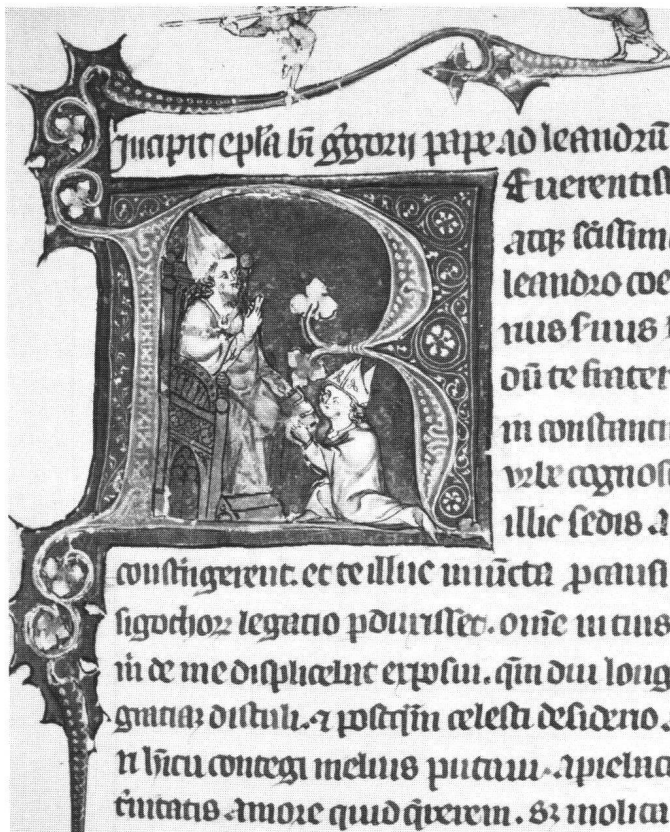 Incipit epła bi ggorii pape ad leandrū
Reuerentiss
atq; sc̄issim
leandro coe
nus suus
dū te frater
in constanti
vrbe cognos
illic sedis a
constrīgerent. et te illuc iniūcta p causi
sigothoꝝ legatio pduxisset. omē in tuis
m̄ de me displicebat exposui. qm̄ diu long
gratiaꝝ distuli. ⁊ postqm̄ celesti desiderio
habitu contegi melius putaui. apieba
t̄nitatis amore quid q̄rerem. sꝫ inolita